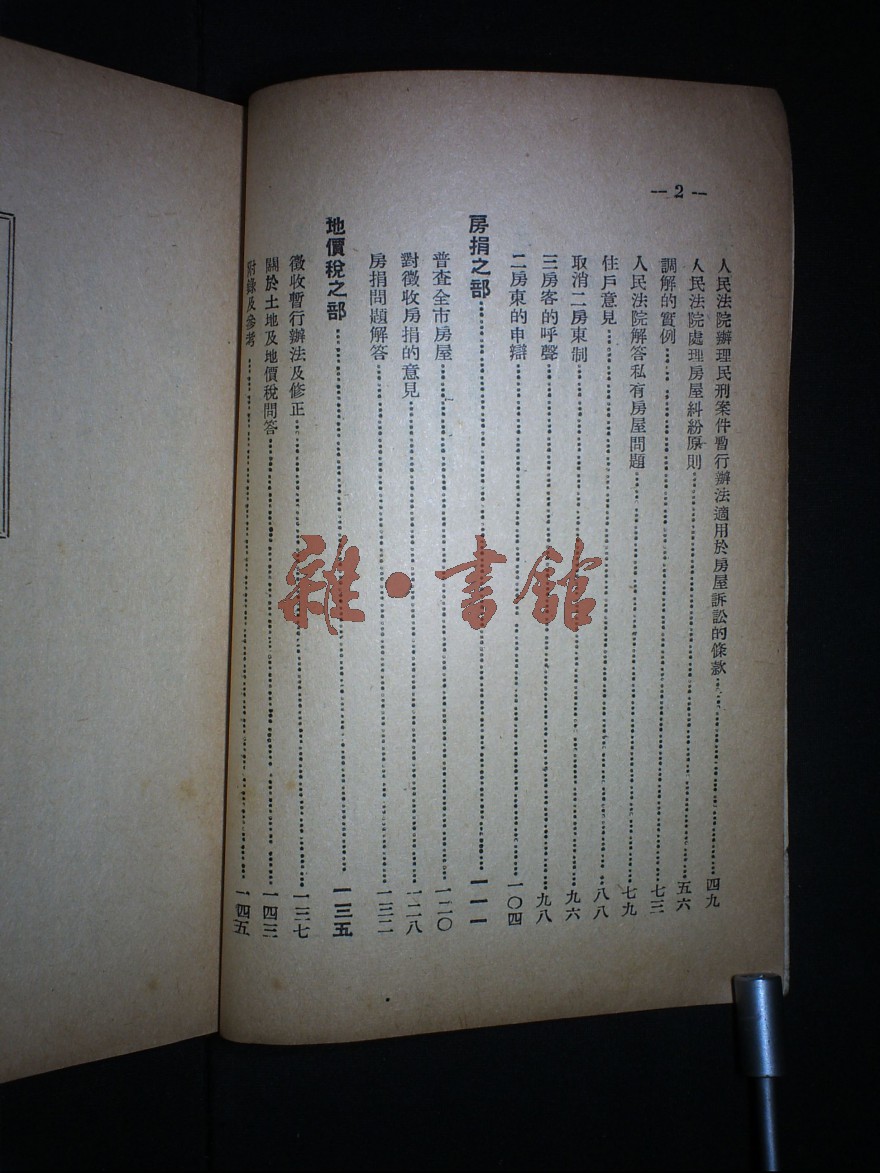 — 2 —
人民法院辦理民刑案件暫行辦法適用於房屋訴訟的條款……四九
人民法院處理房屋糾紛原則……五六
調解的實例……七三
人民法院解答私有房屋問題……七九
住戶意見……八八
取消二房東制……九六
三房客的呼聲……九八
二房東的申辯……一〇四
房捐之部……一一一
普查全市房屋……一二〇
對徵收房捐的意見……一二八
房捐問題解答……一三二
地價稅之部……一三五
徵收暫行辦法及修正……一三七
關於土地及地價稅問答……一四三
附錄及參考……一四五
雜·書館